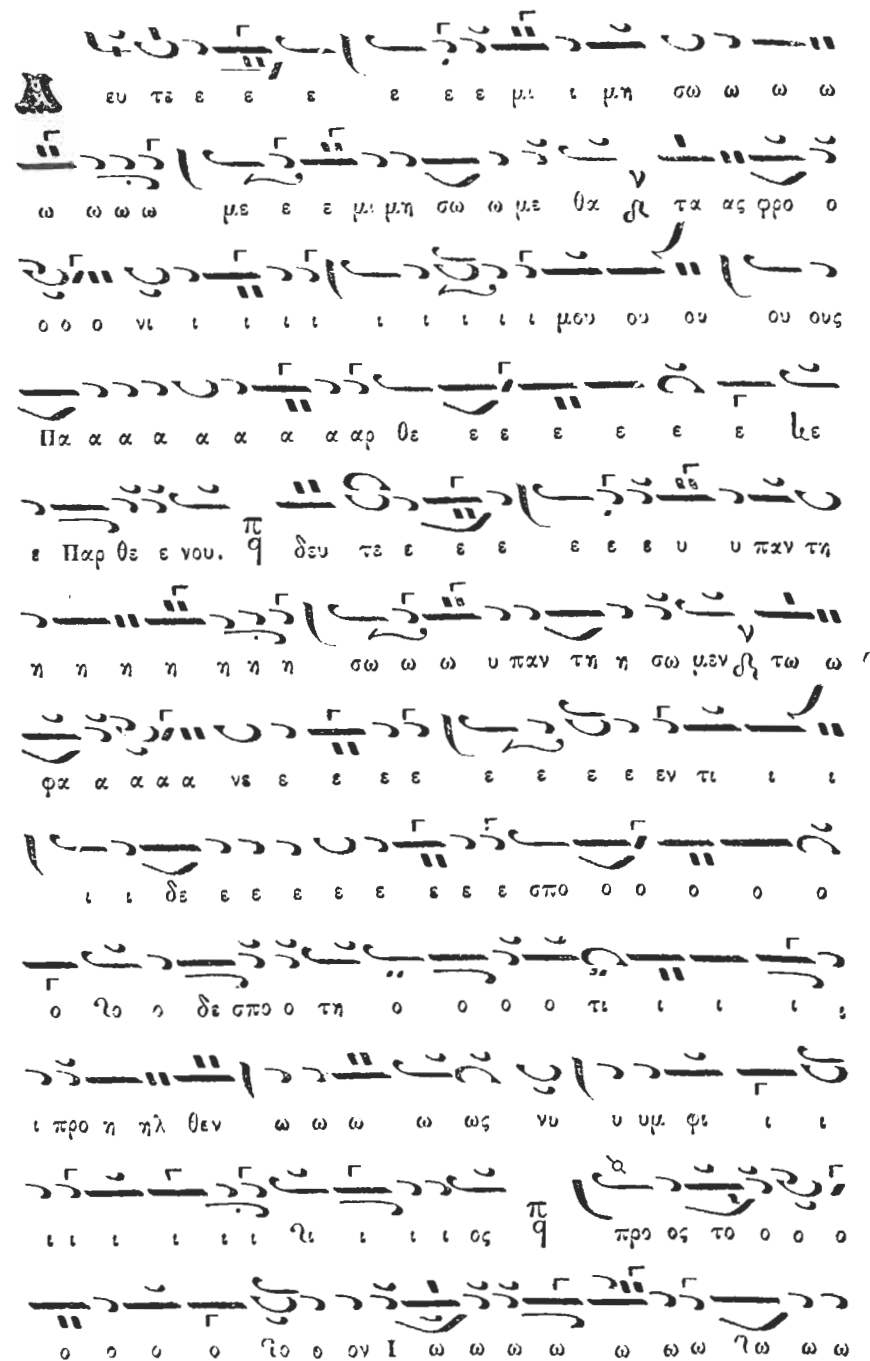 Δ ευ τε ε ε ε ε ε ε μι ι μη σω ω ω ω
ω ω ω ω με ε ε μι μη σω ω με θα ν τα ας φρο ο
ο ο ο νι ι ι ι ι ι ι ι ι ι μου ου ου ου ους
Πα α α α α α α α αρ θε ε ε ε ε ε ε κε
ε Παρ θε ε νου. π q δευ τε ε ε ε ε ε ε υ υ παν τη
η η η η η η η σω ω ω υ παν τη η σω μεν ν τω ω
φα α α α α νε ε ε ε ε ε ε ε ε εν τι ι ι
ι ι δε ε ε ε ε ε ε ε ε σπο ο ο ο ο ο
ο χο ο δε σπο ο τη ο ο ο ο τι ι ι ι ι
ι προ η ηλ θεν ω ω ω ω ως νυ υ υμ φι ι ι
ι ι ι ι ι ι χι ι ι ι ος π q προ ος το ο ο ο
ο ο ο ο χο ο ον Ι ω ω ω ω ω ω ω χω ω ω